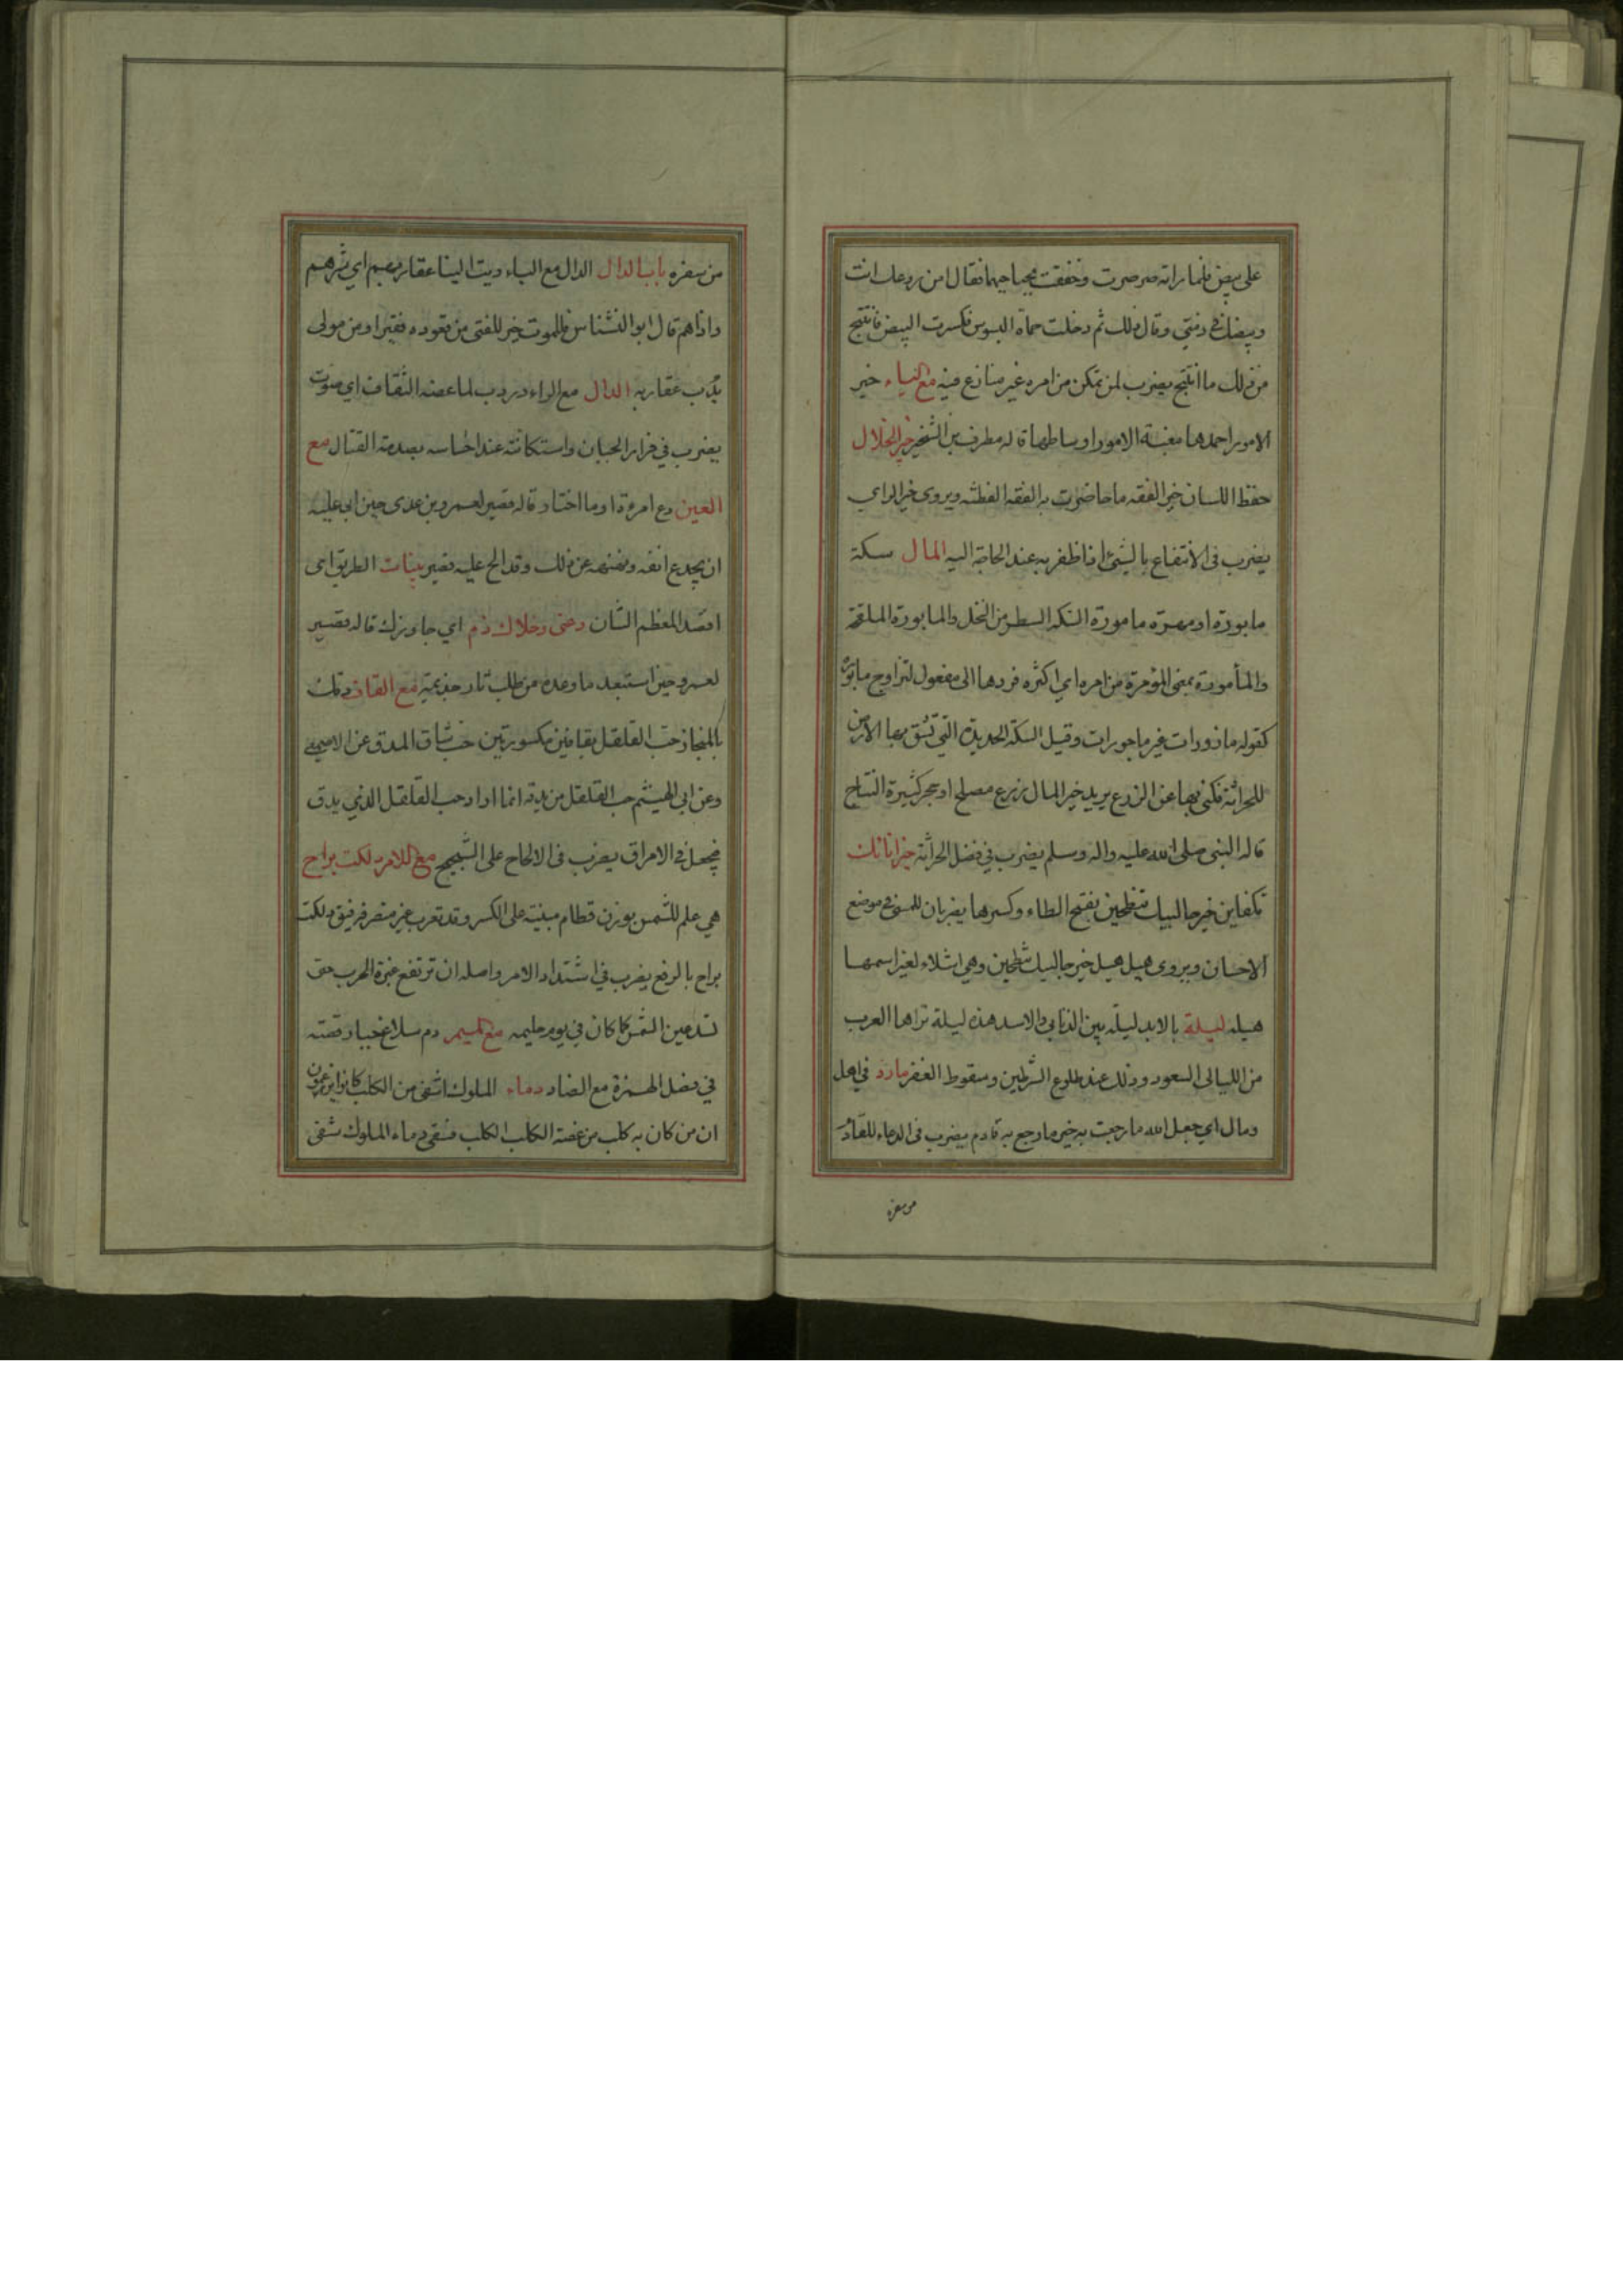 على بيض فلما راته صرصرت وخفقت بجناحيها فقال امن روعك انت
وبيضك في ذمتي وقال ذلك ثم دخلت حماه البسوس فكسرت البيض فانتج
من ذلك ما انتج يضرب لمن تمكن من امره غير منازع فيه مع الياء خير
الامور احمدها مغبة الامور اوساطها قاله مطرف بن الشخير خير الخلال
حفظ اللسان خير الفقه ما حاضرت به الفقه الفطنه ويروى خير الراي
يضرب في الانتفاع بالشيء اذا ظفر به عند الحاجة اليه المال سكة
مابورة او مهرة مامورة السكة السطر من النخل والمابورة الملقحة
والمأمورة بمعنى المؤمرة من امره اي اكثره فردها الى مفعول لتزاوج مابورة
كقوله مازورات غير ماجورات وقيل السكة الحديدة التي تشق بها الارض
للحراثة فكنى بها عن الزرع يريد خير المال زرع مصلح او حجر كثيرة النتاج
قاله النبي صلى الله عليه واله وسلم يضرب في فضل الحراثة خير اناءيك
تكفاين خير حالبيك تنطحين بفتح الطاء وكسرها يضربان للمسئ في موضع
الاحسان ويروى هيل هيل خير حالبيك تنطحين وهي اشلاء لعنز اسمها
هيله ليلة بالابد ليلة بين الزبانى والاسد هذه ليلة تراها العرب
من الليالى السعود وذلك عند طلوع الشرطين وسقوط الغفر مارد في اهل
ومال اي جعل الله ما رجعت به خير ما رجع به قادم يضرب في الدعاء للقادم
من سفره
من سفره باب الدال الدال مع الباء دبت الينا عقاربهم اي شرهم
واذاهم قال ابو النشناس فللموت خير للفتى من قعوده فقيرا ومن مولى
يدب عقاربه الدال مع الراء دردب لما عضه الثقاف اي صوت
يضرب في فرار الجبان واستكانته عند احساسه بصدمة القتال مع
العين دع امرءا وما اختار قاله قصير لعمرو بن عدى حين ابى عليه
ان يجدع انفه ونهنهه عن ذلك وقد الح عليه قصير بنيات الطريق اى
اقصد المعظم الشان دعنى وخلاك ذم اي جاوزك قاله قصير
لعمرو حين استبعد ما وعده من طلب ثار جذيمة مع القاف دقك
بالمنحاز حب القلقل بقافين مكسورتين حب شاق المدق عن الاصمعي
وعن ابى الهيثم حب القلقل من يدقه انما اراد حب الفلفل الذي يدق
فيجعل في الامراق يضرب في الالحاح على الشحيح مع اللام دلكت براح
هي علم للشمس بوزن قطام مبنية على الكسر وقد تعرب غير منصرف فيق دلكت
براح بالرفع يضرب في اشتداد الامر واصله ان ترتفع غبرة الحرب حتى
تسد عين الشمس كما كان في يوم حليمه مع الميم دم سلاغ جبار قصته
في فصل الهمزة مع الضاد دماء الملوك اشفى من الكلب كانوا يزعمون
ان من كان به كلب من عضة الكلاب الكلب فسقى دماء الملوك شفى